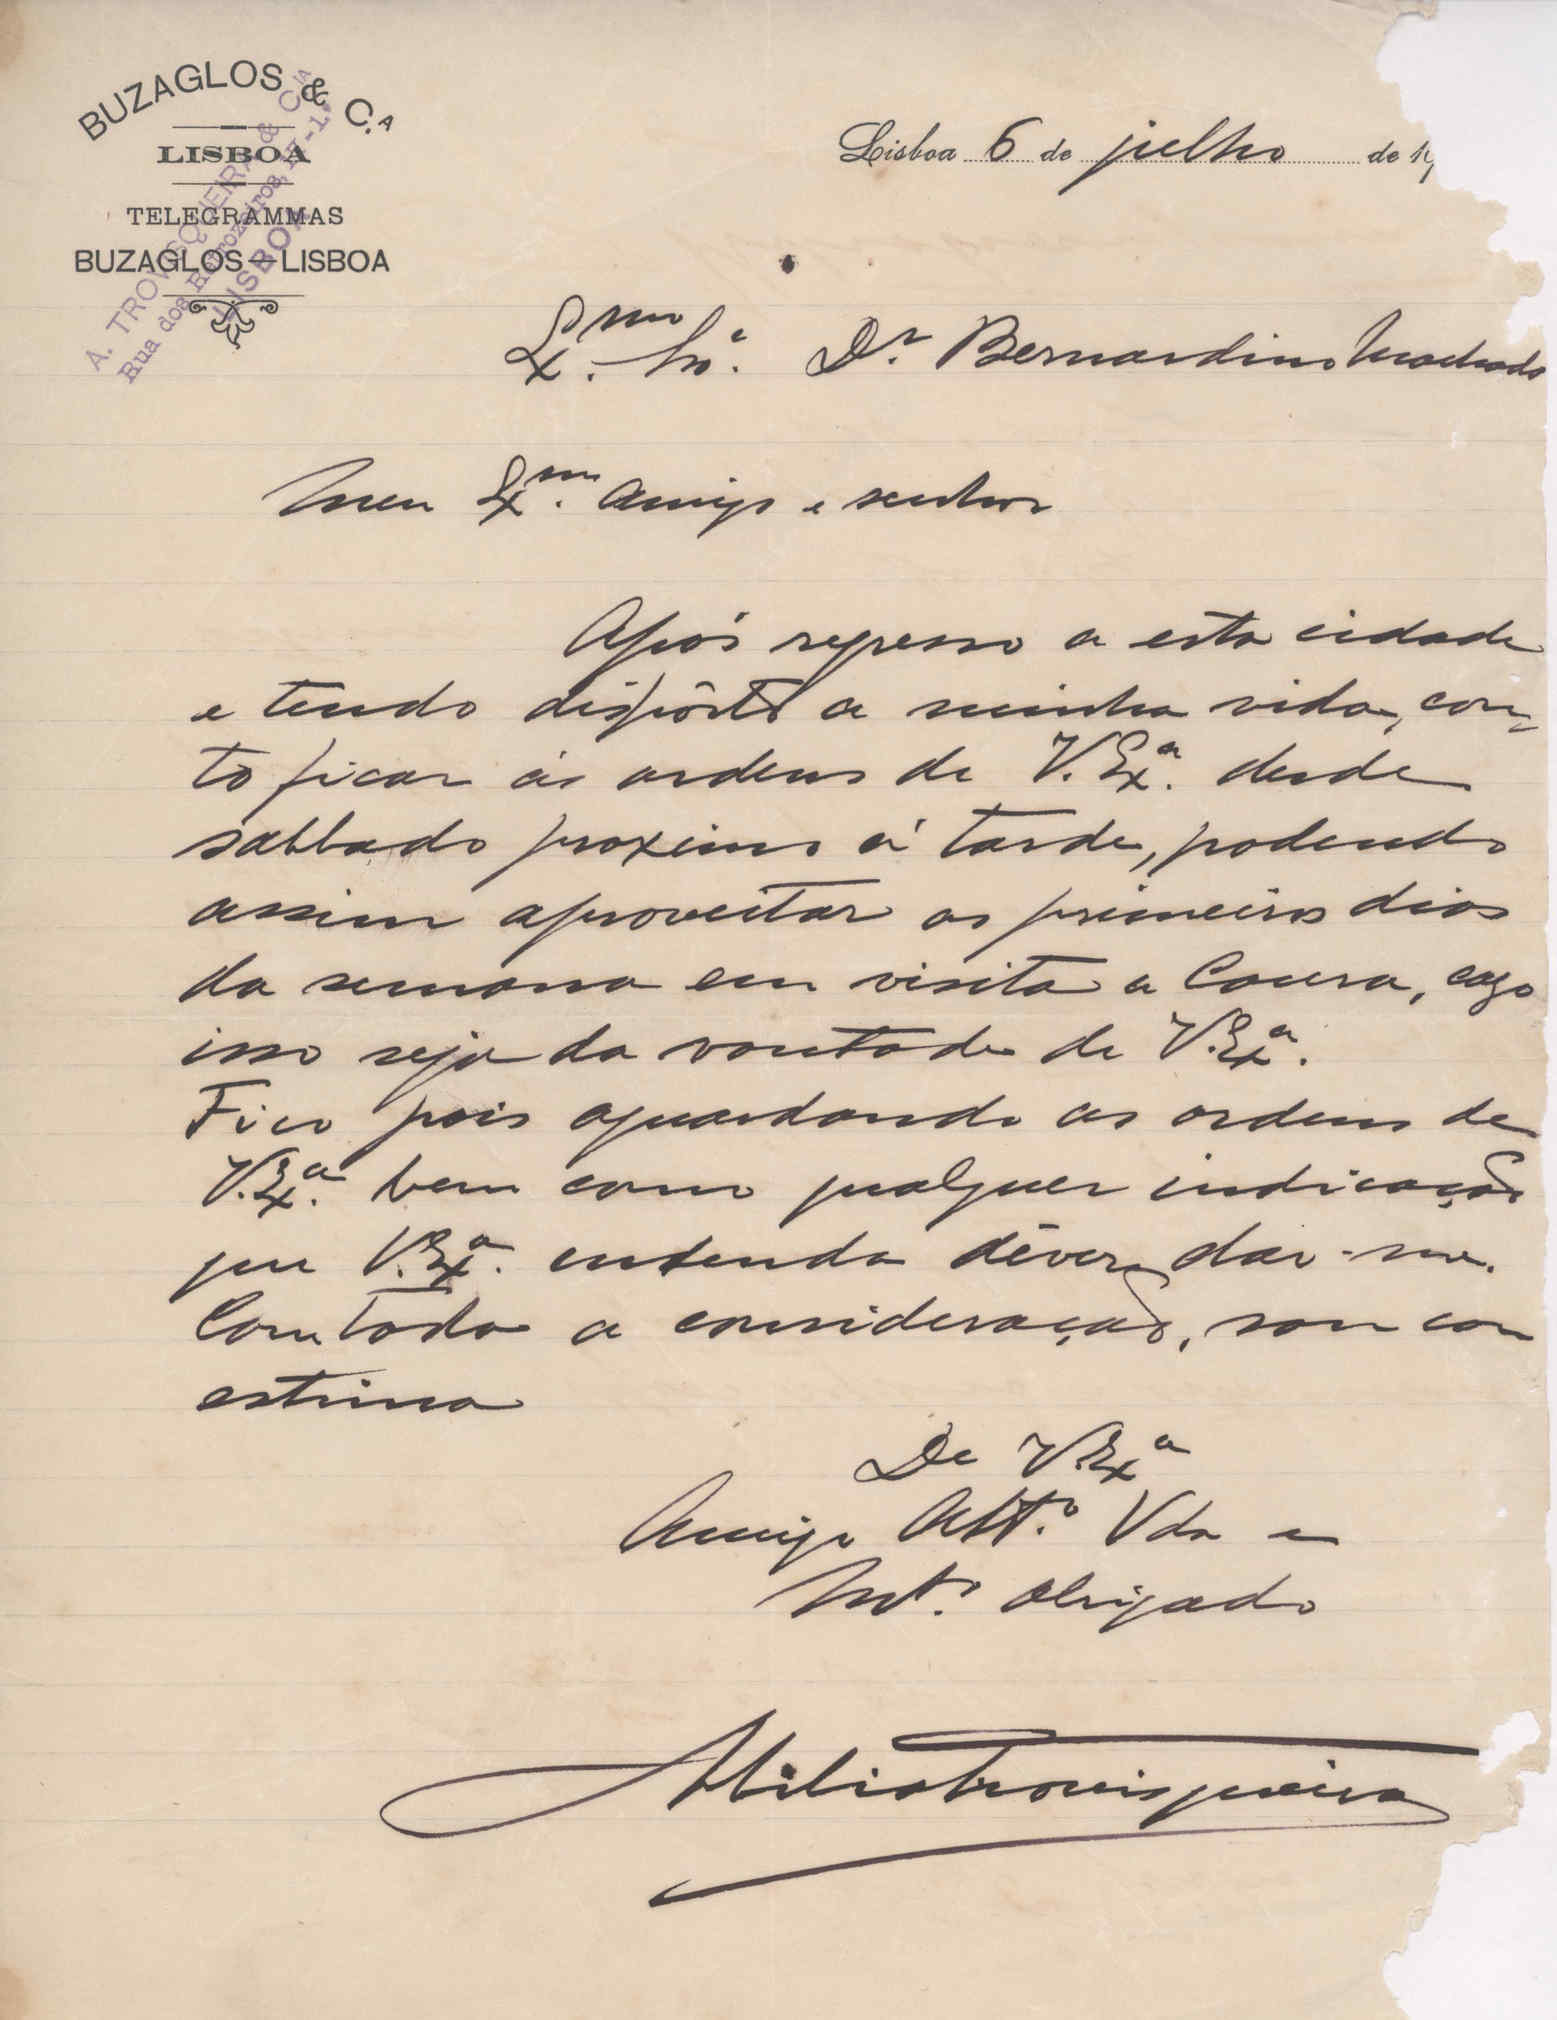 BUZAGLOS & C.A
LISBOA
TELEGRAMMAS
BUZAGLOS—LISBOA
A. TROVISQUEIRA & CIA
Rua dos Retrozeiros, 17-1º
LISBOA
Lisboa 6 de julho de 19
Ex.mo Snr. Dr. Bernardino Machado
Meu Ex.mo Amigo e senhor
Após regresso a esta cidade
e tendo dispôsto a minha vida, con-
to ficar ás ordens de V. Ex.a desde
sabbado proximo á tarde, podendo
assim aproveitar os primeiros dias
da semana em visita a Coura, cazo
isso seja da vontade de V. Ex.a.
Fico pois aguardando as ordens de
V. Ex.a bem como qualquer indicação
que V. Ex.a entenda dever dar-me.
Com toda a consideração, sou com
estima
De V. Ex.a
Amigo Att.o Vdr e
Mt.o Obrigado
Abilio Trovisqueira